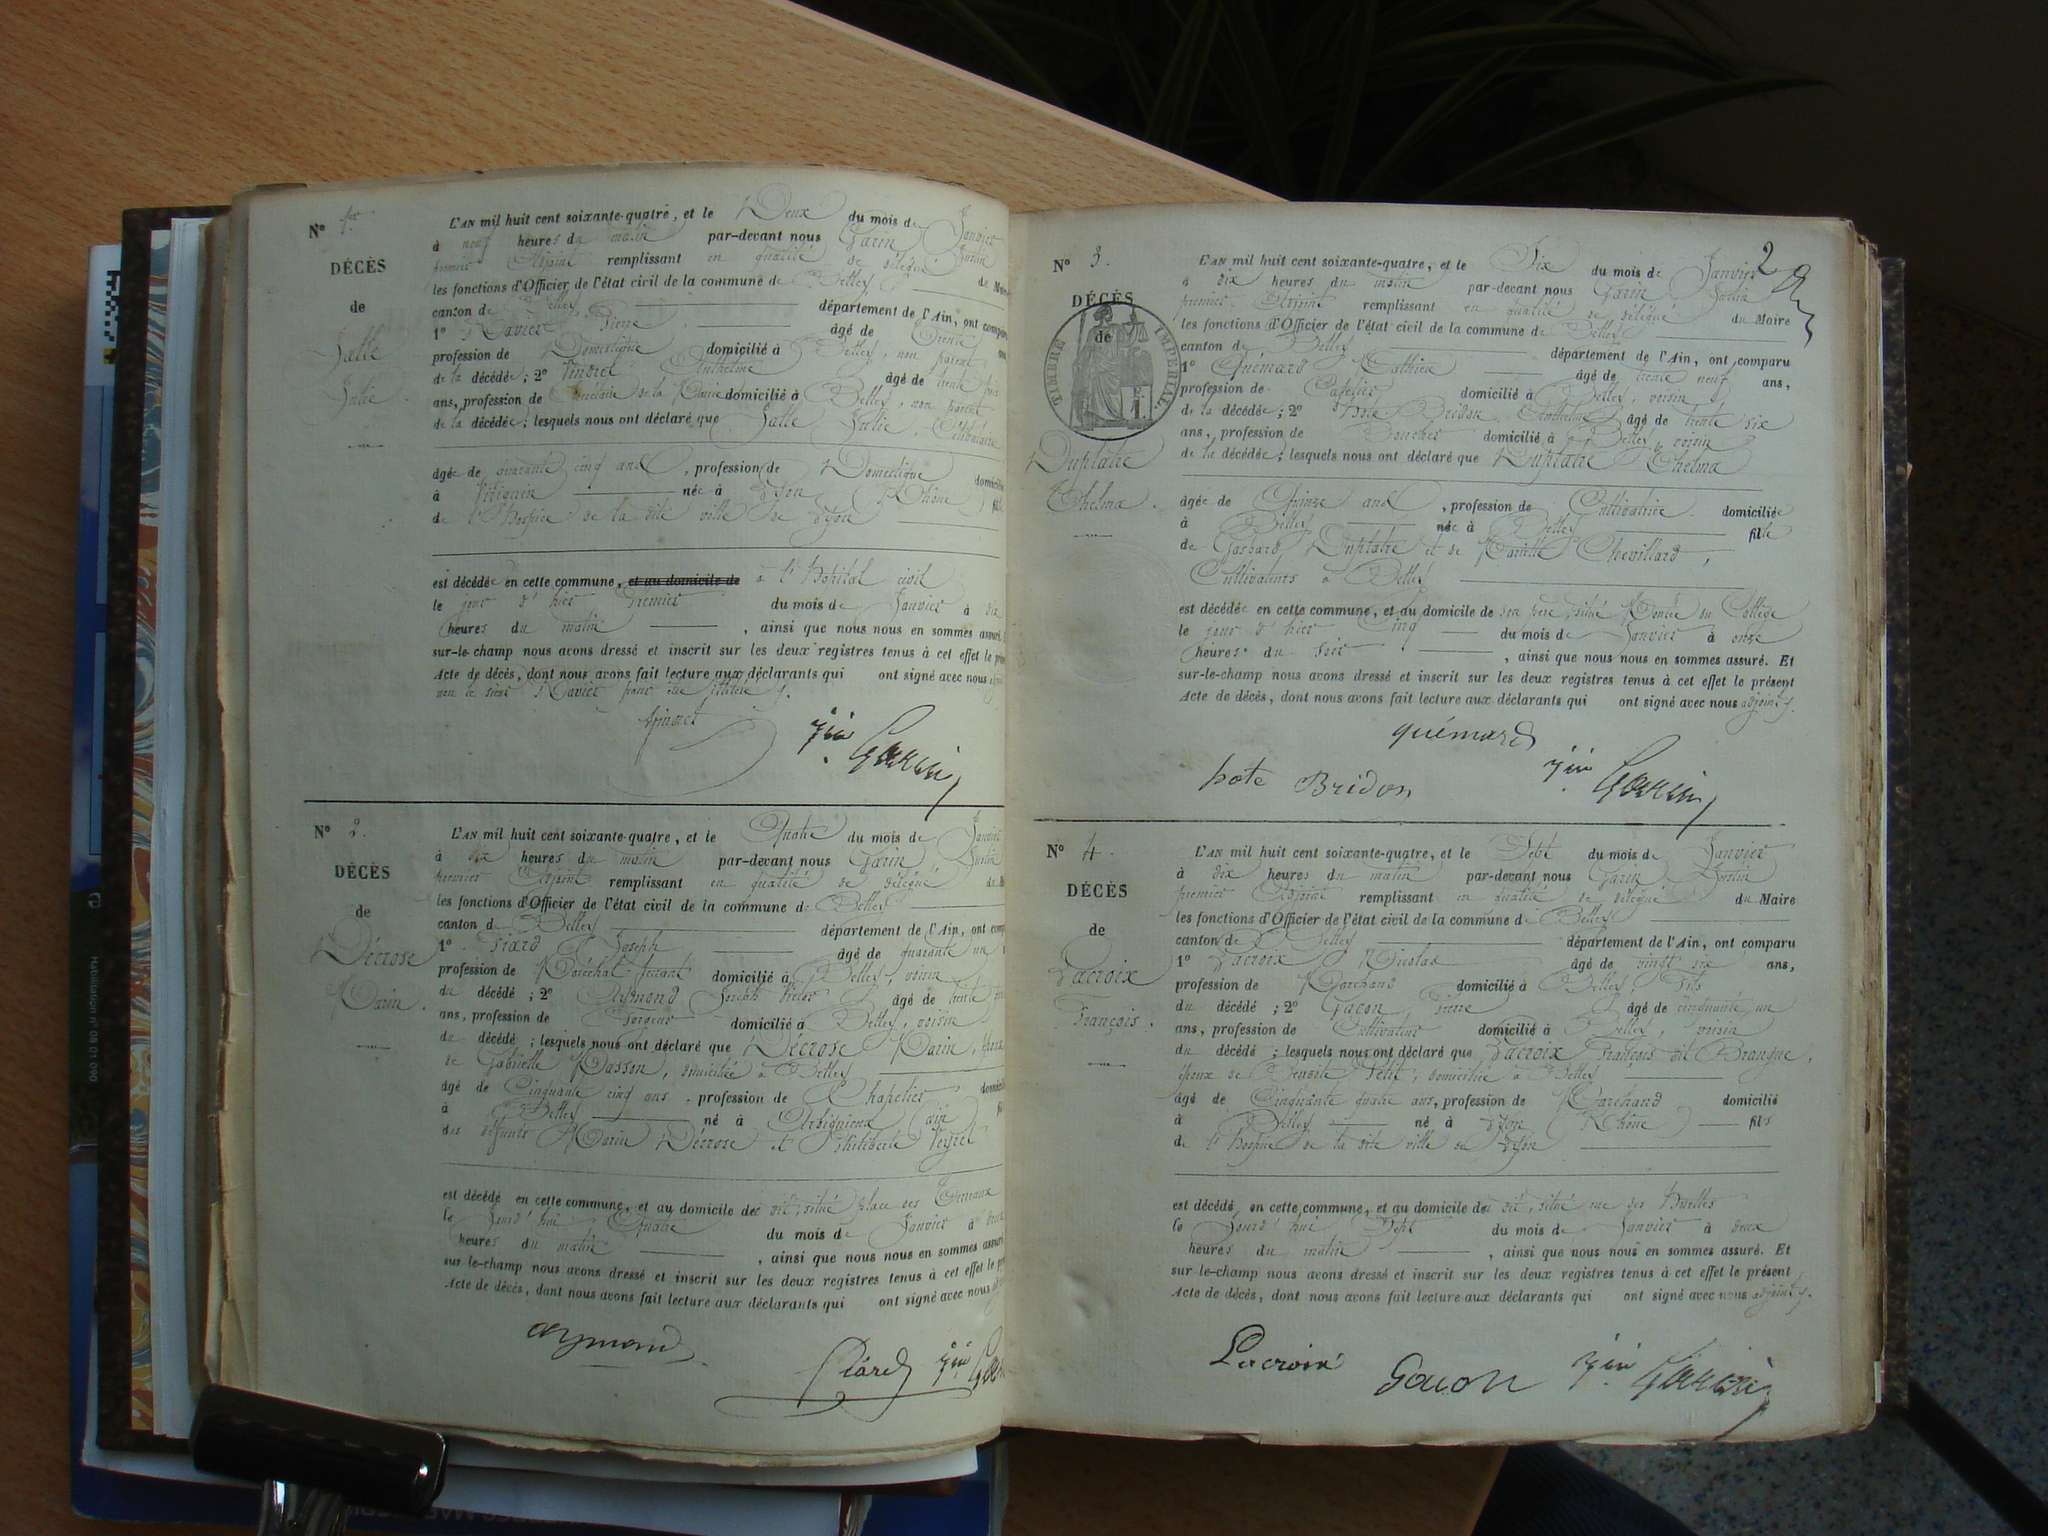 N° 1er
DÉCÈS
de
Jatte
Julie.
L'AN mil huit cent soixante-quatre, et le Deux du mois de Janvier
à neuf heures du matin par-devant nous Garin Justin
premier Adjoint remplissant en qualité de délégué du Maire
les fonctions d'Officier de l'état civil de la commune de Belley
canton de Belley département de l'Ain, ont comparu
1° Pierre âgé de trente
profession de Domestique domicilié à Belley, non parent
de la décédée; 2° Vindret Anthelme âgé de trente
ans, profession de Secrétaire de la Mairie domicilié à Belley, non parent
de la décédée; lesquels nous ont déclaré que Jatte Julie, Célibataire
âgée de quarante cinq ans, profession de Domestique domiciliée
à Virignin née à Lyon (Rhône) fille
de l'Hospice de la dite ville de Lyon
est décédée en cette commune, et au domicile de à l'Hôpital civil
le jour d'hier Premier du mois de Janvier à dix
heures du matin, ainsi que nous nous en sommes assuré.
sur-le-champ nous avons dressé et inscrit sur les deux registres tenus à cet effet le
Acte de décès, dont nous avons fait lecture aux déclarants qui ont signé avec nous
non le sieur pour être illitéré
jin Garin
N° 2.
DÉCÈS
de
Décrose
Marin.
L'AN mil huit cent soixante-quatre, et le Quatre du mois de Janvier
à dix heures du matin par-devant nous Garin Justin
premier Adjoint remplissant en qualité de délégué du
les fonctions d'Officier de l'état civil de la commune de Belley
canton de Belley département de l'Ain, ont
1° Piard Joseph âgé de quarante un
profession de Maréchal ferrant domicilié à Belley, voisin
du décédé; 2° Aymond Joseph Victor âgé de trente
ans, profession de domicilié à Belley, voisin
du décédé; lesquels nous ont déclaré que Décrose Marin, époux
de Gabrielle Masson, domiciliée à Belley
âgé de Cinquante cinq ans, profession de Chapelier
à Belley né à Arbignieu (Ain)
des défunts Marin Décrose et Philiberte
est décédé en cette commune, et au domicile de dit, situé place des Terreaux
le Jourd'hui Quatre du mois de Janvier à
heures du matin, ainsi que nous nous en sommes assuré
sur-le-champ nous avons dressé et inscrit sur les deux registres tenus à cet effet le
Acte de décès, dont nous avons fait lecture aux déclarants qui ont signé avec nous
aymond
Piard jin
2
N° 3.
DÉCÈS
de
TIMBRE IMPÉRIAL
Duplatre
Thelma.
L'AN mil huit cent soixante-quatre, et le Six du mois de Janvier
à dix heures du matin par-devant nous Garin Justin
premier Adjoint remplissant en qualité de délégué du Maire
les fonctions d'Officier de l'état civil de la commune de Belley
canton de Belley département de l'Ain, ont comparu
1° Quémard Mathieu âgé de trente neuf ans,
profession de domicilié à Belley, voisin
de la décédée; 2° Bridon Anthelme âgé de trente six
ans, profession de Boucher domicilié à Belley, voisin
de la décédée; lesquels nous ont déclaré que Duplatre Thelma
âgée de Quinze ans, profession de Cultivatrice domiciliée
à Belley née à Belley fille
de Gaspard Duplatre et de Chevillard,
Cultivateurs à Belley
est décédée en cette commune, et au domicile de son père, situé Montée du Collège
le jour d'hier Cinq du mois de Janvier à onze
heures du soir, ainsi que nous nous en sommes assuré. Et
sur-le-champ nous avons dressé et inscrit sur les deux registres tenus à cet effet le présent
Acte de décès, dont nous avons fait lecture aux déclarants qui ont signé avec nous adjoint
quémard
pote Bridon jin Garin
N° 4.
DÉCÈS
de
Lacroix
François.
L'AN mil huit cent soixante-quatre, et le Sept du mois de Janvier
à dix heures du matin par-devant nous Garin Justin
premier Adjoint remplissant en qualité de délégué du Maire
les fonctions d'Officier de l'état civil de la commune de Belley
canton de Belley département de l'Ain, ont comparu
1° Lacroix Nicolas âgé de vingt six ans,
profession de Marchand domicilié à Belley, fils
du décédé; 2° Gacon Pierre âgé de cinquante un
ans, profession de Cultivateur domicilié à Belley, voisin
du décédé; lesquels nous ont déclaré que Lacroix François dit
époux de Petit, domiciliée à Belley
âgé de Cinquante quatre ans, profession de Marchand domicilié
à Belley né à Lyon (Rhône) fils
de l'Hospice de la dite ville de Lyon
est décédé en cette commune, et au domicile de dit, situé rue des
le Jourd'hui Sept du mois de Janvier à deux
heures du matin, ainsi que nous nous en sommes assuré. Et
sur-le-champ nous avons dressé et inscrit sur les deux registres tenus à cet effet le présent
Acte de décès, dont nous avons fait lecture aux déclarants qui ont signé avec nous adjoint
Lacroix Gacon jin Garin